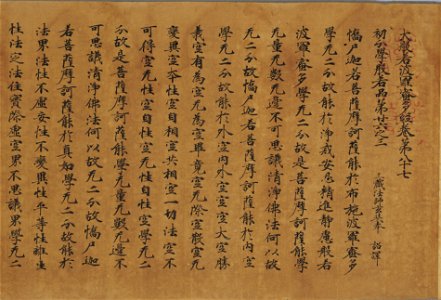 大般若波羅蜜多經卷第八十七
初分學般若品第廿六之三
三藏法師玄奘奉 詔譯
憍尸迦若菩薩摩訶薩能於布施波羅蜜多
學無二分故能於淨戒安忍精進靜慮般若
波羅蜜多學無二分故是菩薩摩訶薩能學
無量無數無邊不可思議清淨佛法何以故
無二分故憍尸迦若菩薩摩訶薩能於內空
學無二分故能於外空內外空空空大空勝
義空有為空無為空畢竟空無際空散空無
變異空本性空自相空共相空一切法空不
可得空無性空自性空無性自性空學無二
分故是菩薩摩訶薩能學無量無數無邊不
可思議清淨佛法何以故無二分故憍尸迦
若菩薩摩訶薩能於真如學無二分故能於
法界法性不虛妄性不變異性平等性離生
性法定法住實際虛空界不思議界學無二